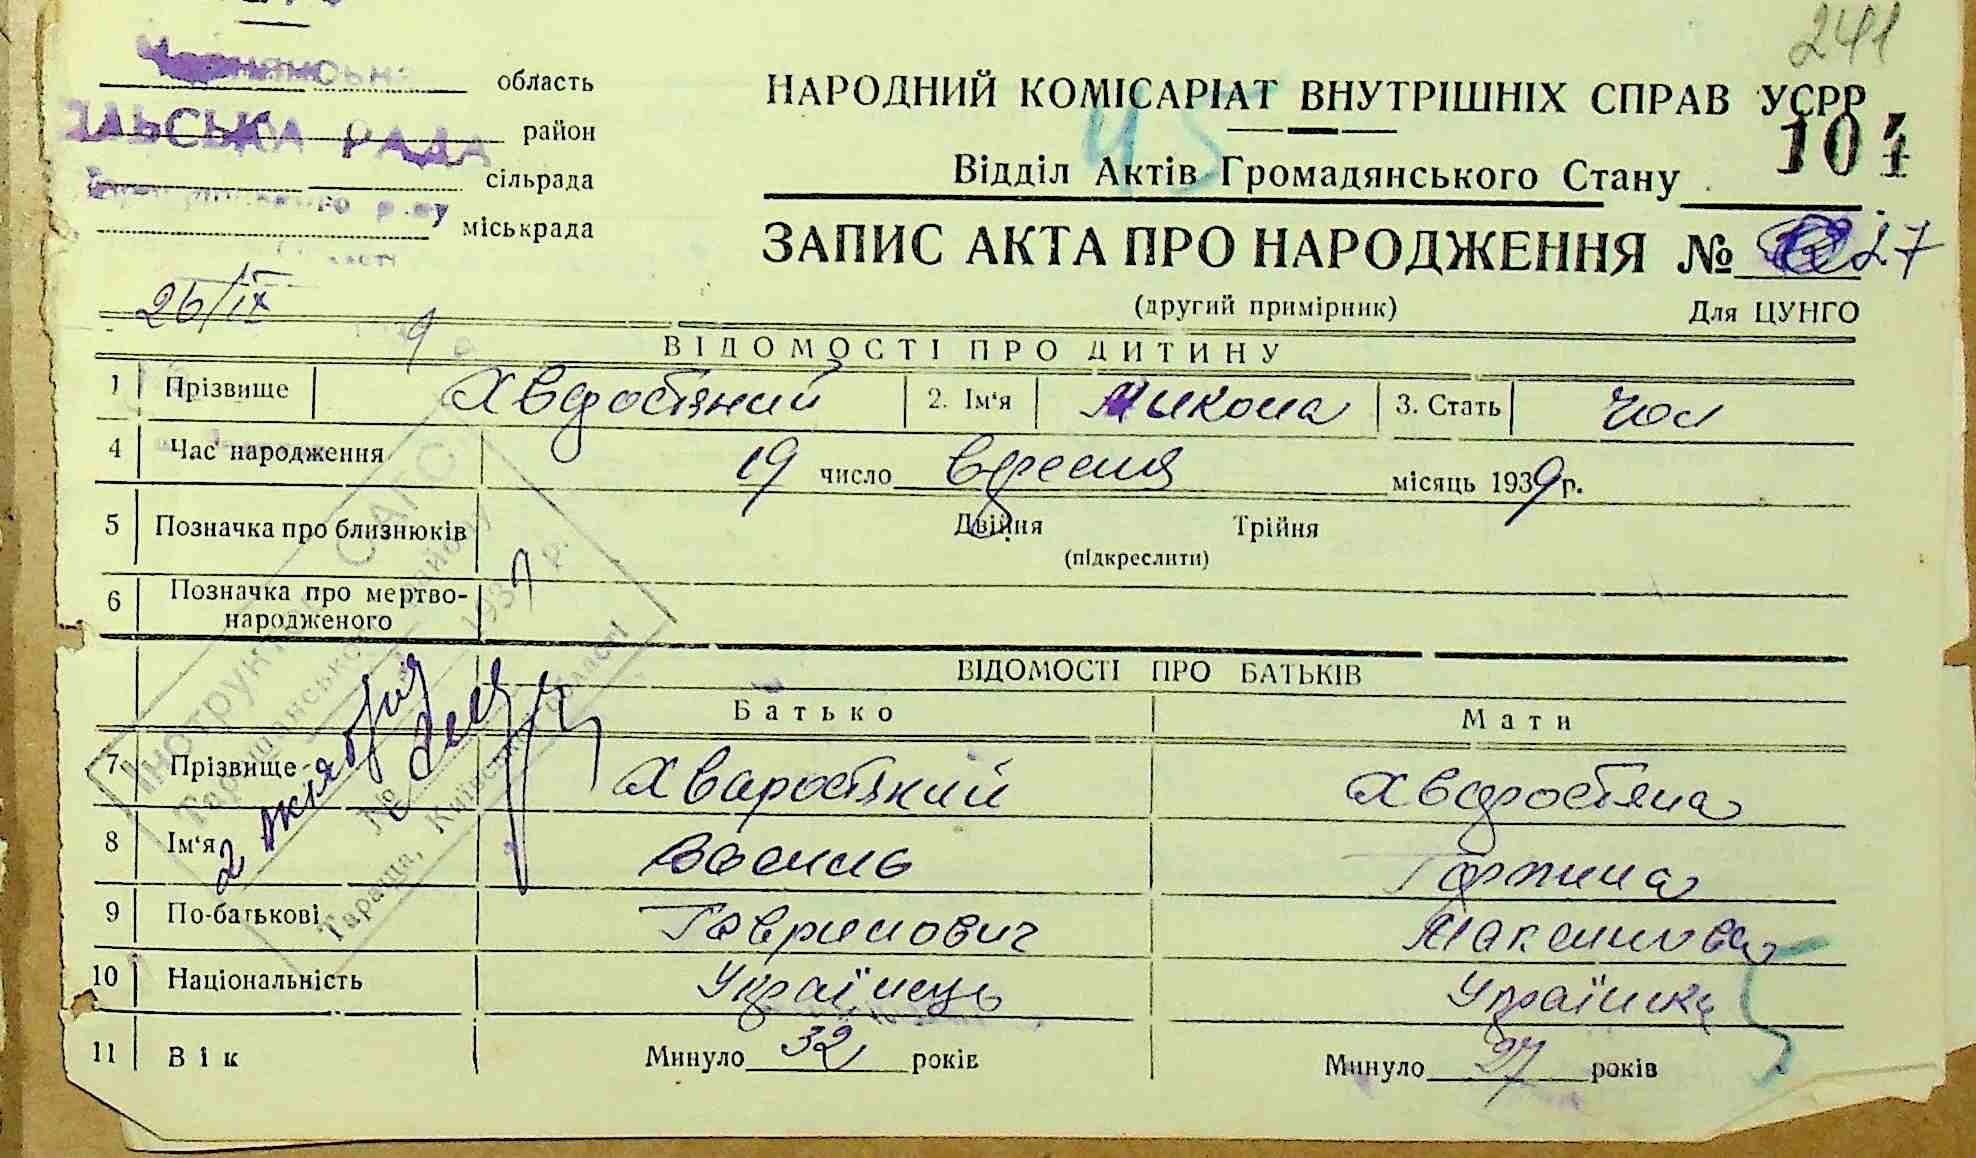 241
область
район
ІЛЬСЬКА РАДА
сільрада
міськрада
НАРОДНИЙ КОМІСАРІАТ ВНУТРІШНІХ СПРАВ УСРР
45
104
Відділ Актів Громадянського Стану
ЗАПИС АКТА ПРО НАРОДЖЕННЯ № 27
(другий примірник) Для ЦУНГО
26/IX 9
ВІДОМОСТІ ПРО ДИТИНУ
1 Прізвище Хворостяний 2. Ім'я Микола 3. Стать чол
4 Час народження 19 число вересня місяць 1939 р.
5 Позначка про близнюків Двійня Трійня
(підкреслити)
6 Позначка про мертво-
народженого
ВІДОМОСТІ ПРО БАТЬКІВ
Батько Мати
7 Прізвище Хваростяний Хворостяна
8 Ім'я Василь Горпина
9 По-батькові Гаврилович Максимова
10 Національність Українець Українка
11 Вік Минуло 32 років Минуло 27 років
Інструктор САГС
Таращанського району
2 жовтня 1939 р.
№
Тараща, Київської області